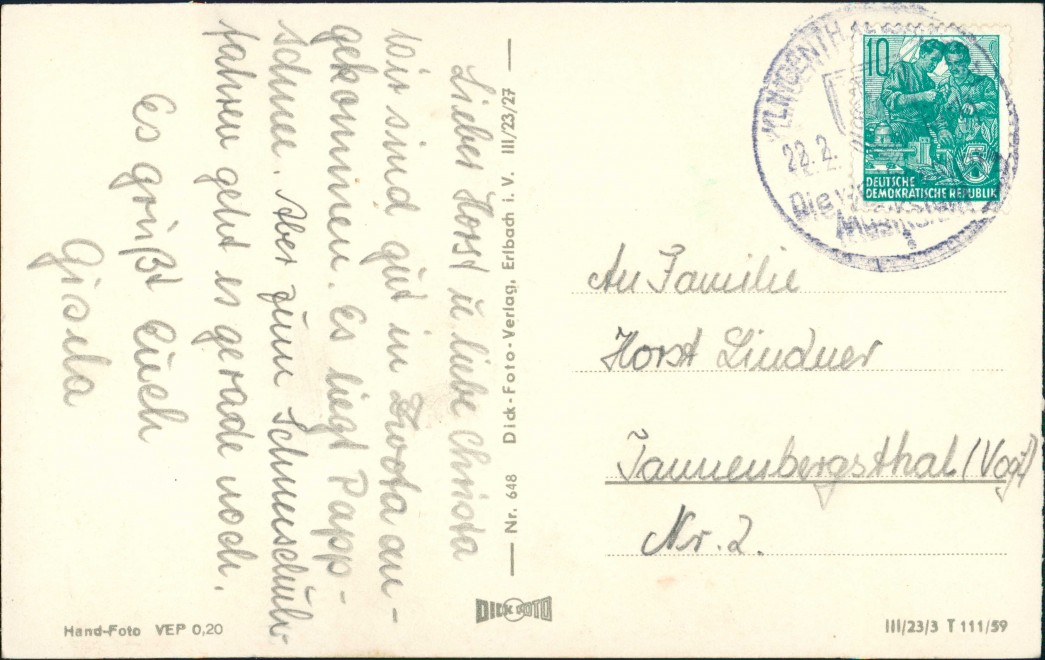 Lieber Horst u. liebe Christa
Wir sind gut in Zwota an-
gekommen. Es liegt Papp-
schnee. Aber zum Schneeschuh-
fahren geht es gerade noch.
Es grüßt Euch
Gisela
Nr. 648 Dick-Foto-Verlag, Erlbach i. V. III/23/27
DICK FOTO
Hand-Foto VEP 0,20
KLINGENTH
22.2.
Die
Musik
10
5
DEUTSCHE
DEMOKRATISCHE REPUBLIK
An Familie
Horst Lindner
Tannenbergsthal (Vogt)
Nr. 2.
III/23/3 T 111/59